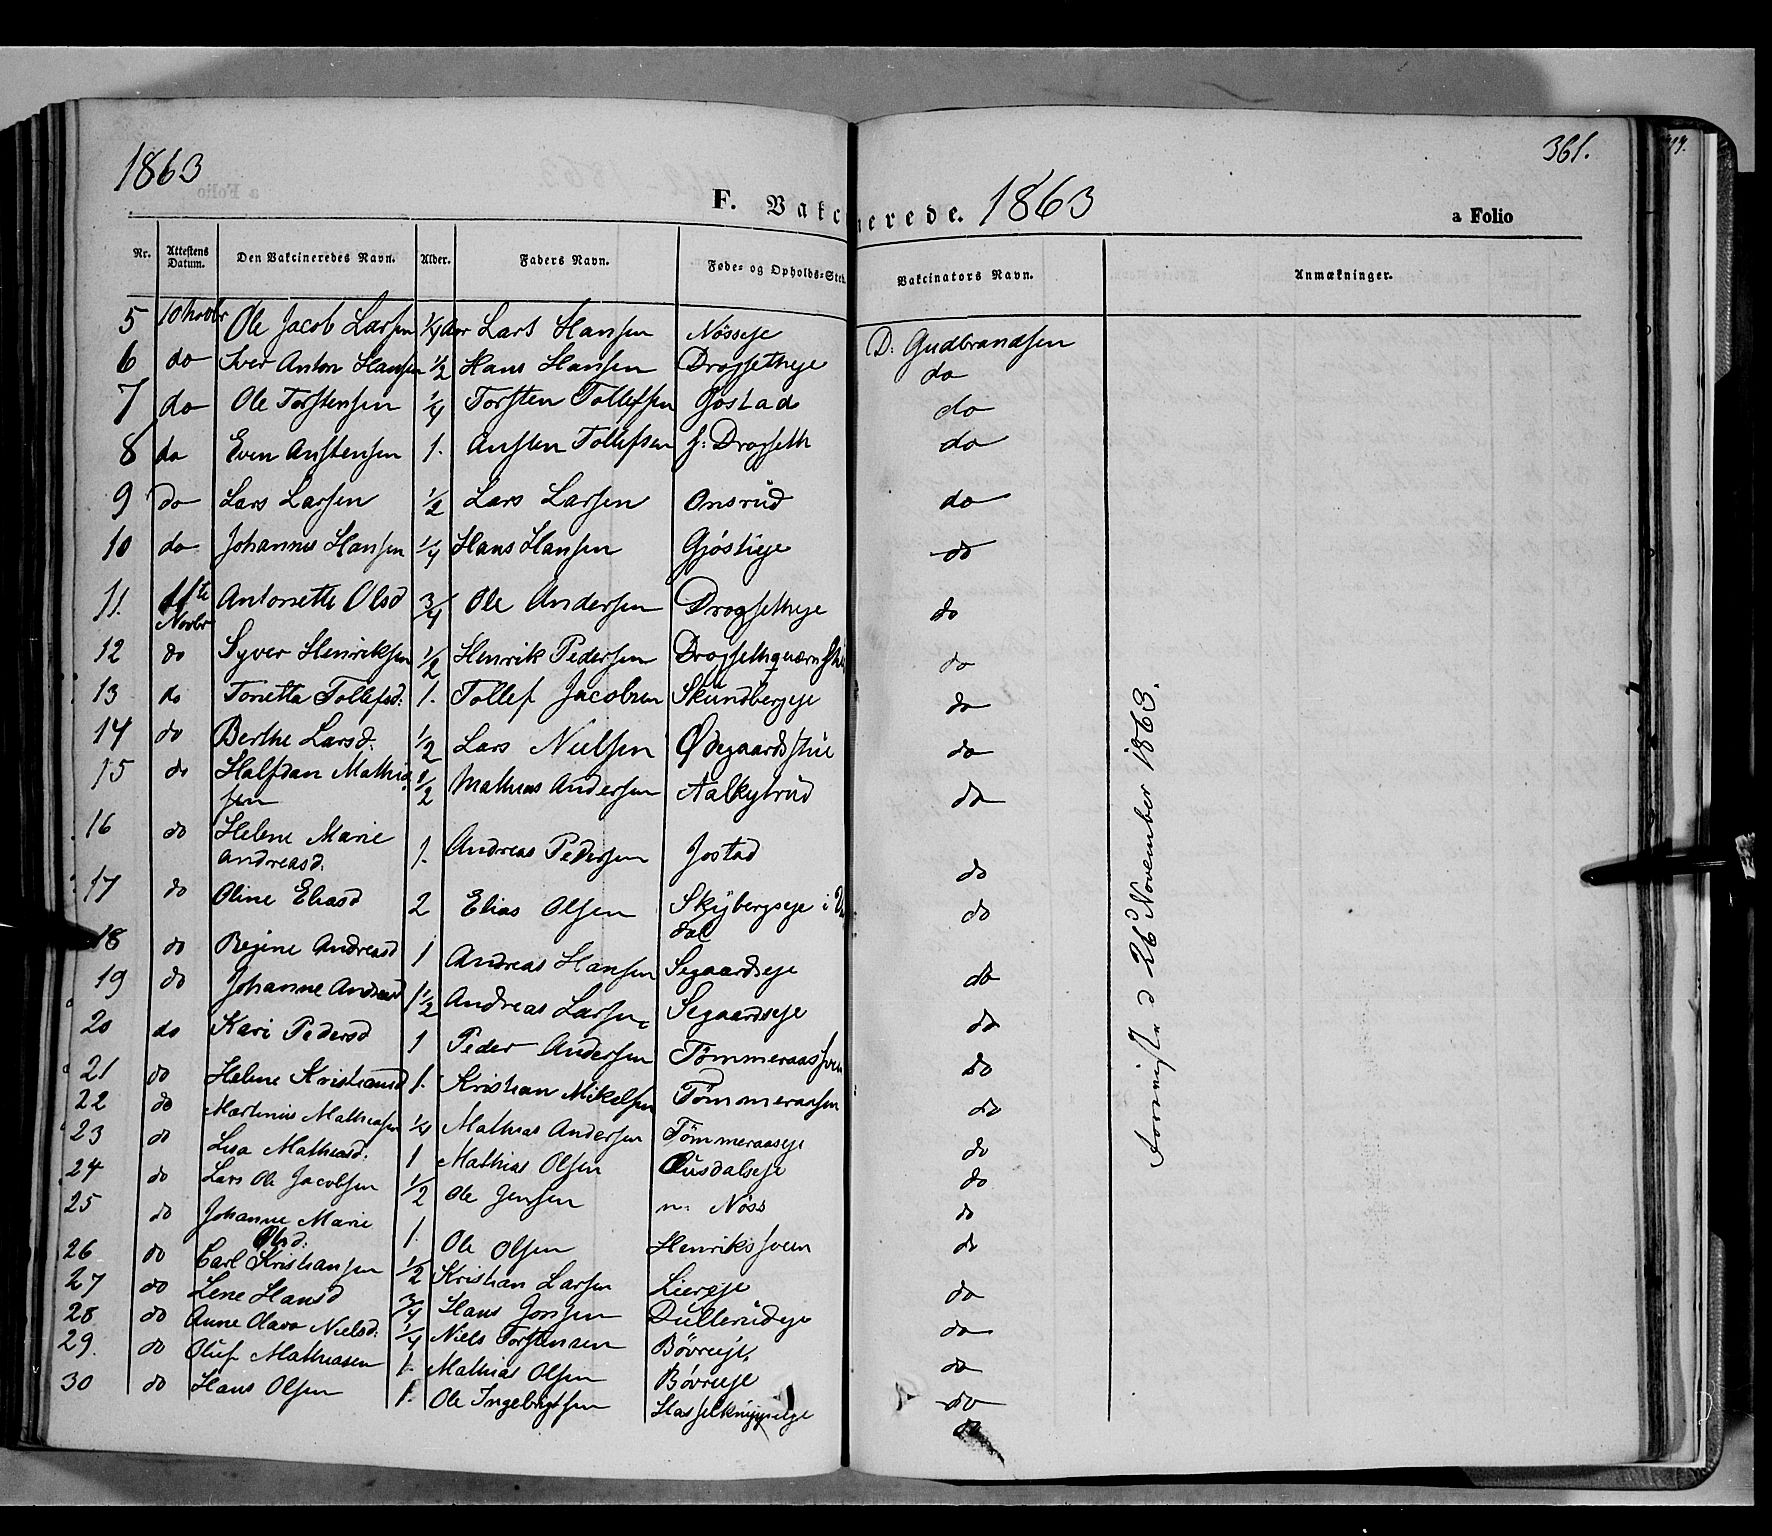 1863
361.
F. Vakcinerede. 1863
a Folio
Nr. Attestens Datum. Den Vakcineredes Navn. Alder. Faders Navn. Føde- og Opholds-Sted. Vakcinators Navn. Anmærkninger.
5 10 Novbr Ole Jacob Larsen 1/4 Aar Lars Hansen Nösseje D: Gudbrandsen
6 do Iver Anton Hansen 1/2 Hans Hansen Drogsetheje do
7 do Ole Torstensen 1/4 Torsten Tollefsen Gjostad do
8 do Even Anstensen 1. Ansten Tollefsen s: Drogseth do
9 do Lars Larsen 1/2 Lars Larsen Onsrud do
10 do Johannes Hansen 1/4 Hans Hansen Gjöslieje do
11. 11te Novbr Antonette Olsd 3/4 Ole Andersen Drogsetheje do
12 do Syver Henriksen 1/2 Henrik Pedersen do
13 do Tonetta Tollefsd: 1. Tollef Jacobsen Skundbergeje do
14 do Berthe Larsd. 1/2 Lars Nielsen Ödegaardsstue do
15 do Halfdan Mathia
sen 1/2 Mathias Andersen Aalkytrud do
16 do Helene Marie
Andreasd. 1. Andreas Pedersen Jostad do
17 do Oline Eliasd 2 Elias Olsen Skybergseje i
dal do
18 do Regine Andreasd 1 Andreas Hansen Segaardseje do
19 do Johanne Andreasd 1 1/2 Andreas Larsen Segaardseje do
20 do Kari Pedersd 1 Peder Andersen do
21 do Helene Kristiansd 1. Kristian Mikelsen Tömmeraasen do
22 do Martinius Mathiasen 1/4 Mathias Andersen Tömmeraaseje do
23 do Lisa Mathiasd. 1 Mathias Olsen Ousdalseje do
24 do Lars Ole Jacobsen 1/2 Ole Jensen n: Nöss do
25 do Johanne Marie
Olsd: 1. Ole Olsen Henrikssveen do
26 do Carl Kristiansen 1/2 Kristian Larsen Liereje do
27 do Lene Hansd 3/4 Hans Jonsen Dullerudeje do
28 do Anne Olava Nielsd: 1/4 Niels Torstensen Bövreeje. do
29. do Oluf Mathiasen 1. Mathias Olsen Bövreeje do
30 do Hans Olsen 1. Ole Ingebrigtsen do
d 26 November 1863.